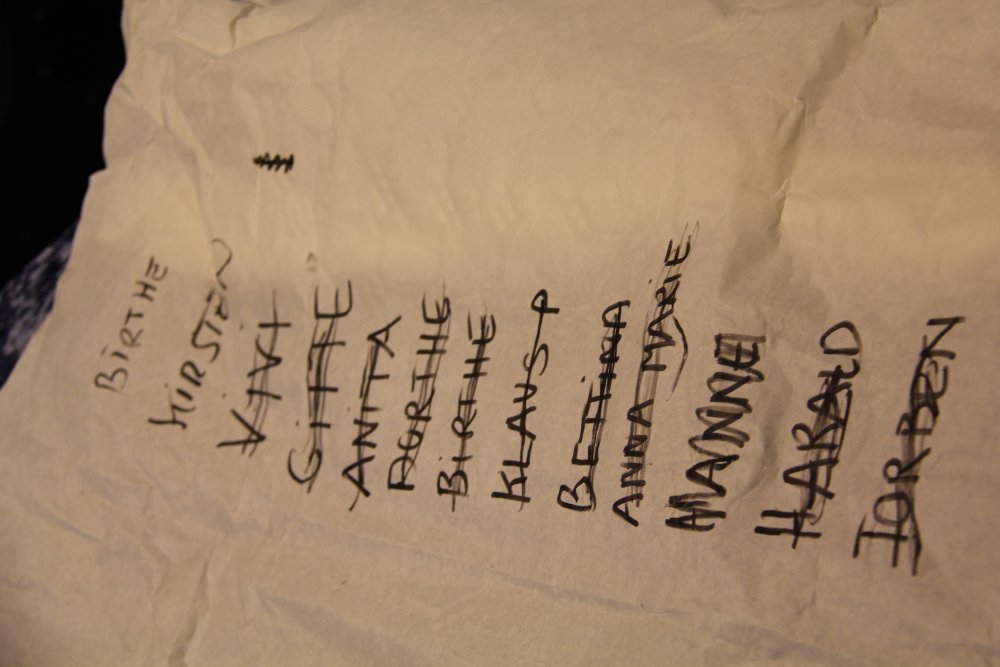 BIRTHE
KIRSTEN
VIVI
GITTE
ANITA
DORTHE
BIRTHE
KLAUS P
BETINA
ANNA MARIE
HANNE
HARALD
TORBEN